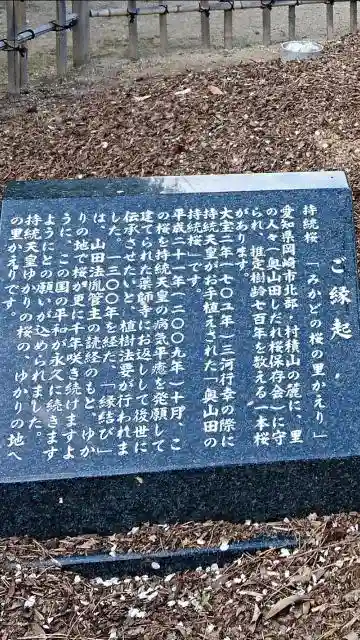 ご縁起
持統桜 「みかどの桜の里かえり」
愛知県岡崎市北部・村積山の麓に、里
の人々（奥山田しだれ桜保存会）に守
られ、推定樹齢七百年を数える一本桜
があります。
大宝二年（七〇二年）三河行幸の際に
持統天皇がお手植えされた「奥山田の
持統桜」です。
平成二十一年（二〇〇九年）十月、こ
の桜を持統天皇の病気平癒を発願して
建てられた薬師寺にお返しして後世に
伝承させたいと、植樹法要が行われま
した。一三〇〇年を経た「縁結び」
は、山田法胤管主の読経のもと、ゆか
りの地で桜が更に千年咲き続けますよ
うに、この国の平和が永久に続きます
ようにとの願いが込められました。
持統天皇ゆかりの桜の、ゆかりの地へ
の里かえりです。